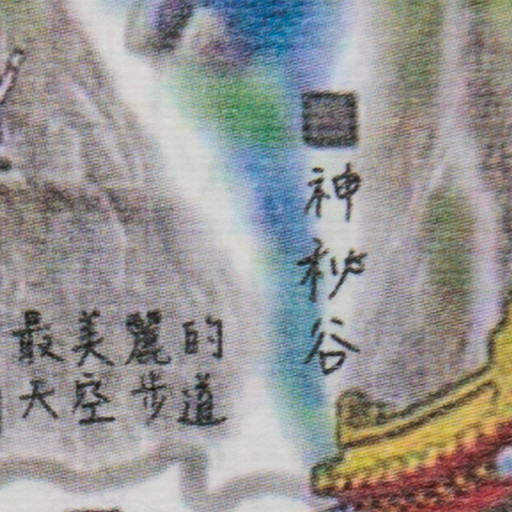 神秘谷
最美麗的
天空步道